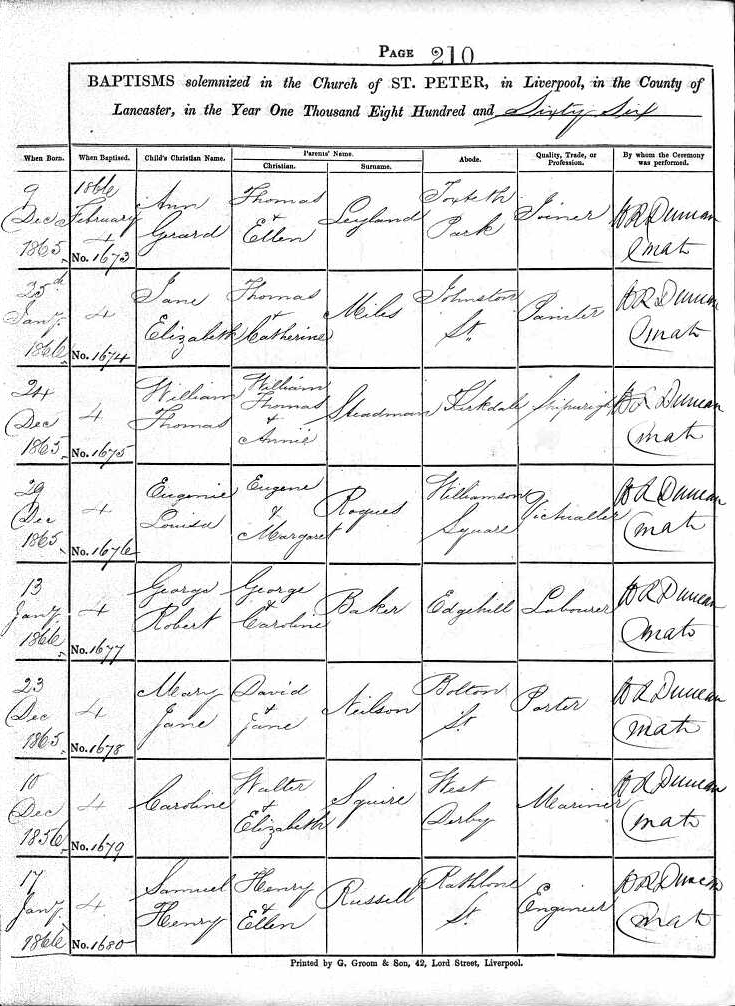 PAGE 210
BAPTISMS solemnized in the Church of ST. PETER, in Liverpool, in the County of
Lancaster, in the Year One Thousand Eight Hundred and Sixty Six
When Born. When Baptised. Child's Christian Name. Parents' Name. Abode. Quality, Trade, or Profession. By whom the Ceremony was performed.
Christian. Surname.
9 1866 Ann Thomas Toxteth
Dec February Grard & Leyland Park Joiner H R Duncan
1865 4 Ellen
No. 1673
25th Jane Thomas Johnston H R Duncan
Jany. 4 & Miles St. Painter
1866 Elizabeth Catherine
No. 1674
24 William William H R Duncan
Dec 4 Thomas Thomas Steadman Kirkdale Shipwright
1865 & Annie
No. 1675
29 Eugenie Eugene Williamson H R Duncan
Dec 4 Louisa & Roques Square Victualler
1865 Margaret
No. 1676
13 George George H R Duncan
Jany. 4 Robert & Baker Edgehill Labourer
1866 Caroline
No. 1677
23 Mary David Bolton H R Duncan
Dec 4 Jane & Neilson St. Porter
1865 Jane
No. 1678
10 Walter West H R Duncan
Dec 4 Caroline & Squire Derby Mariner
1856 Elizabeth
No. 1679
17 Samuel Henry Rathbone H R Duncan
Jany. 4 Henry & Russell St. Engineer
1866 Ellen
No. 1680
Printed by G. Groom & Son, 42, Lord Street, Liverpool.